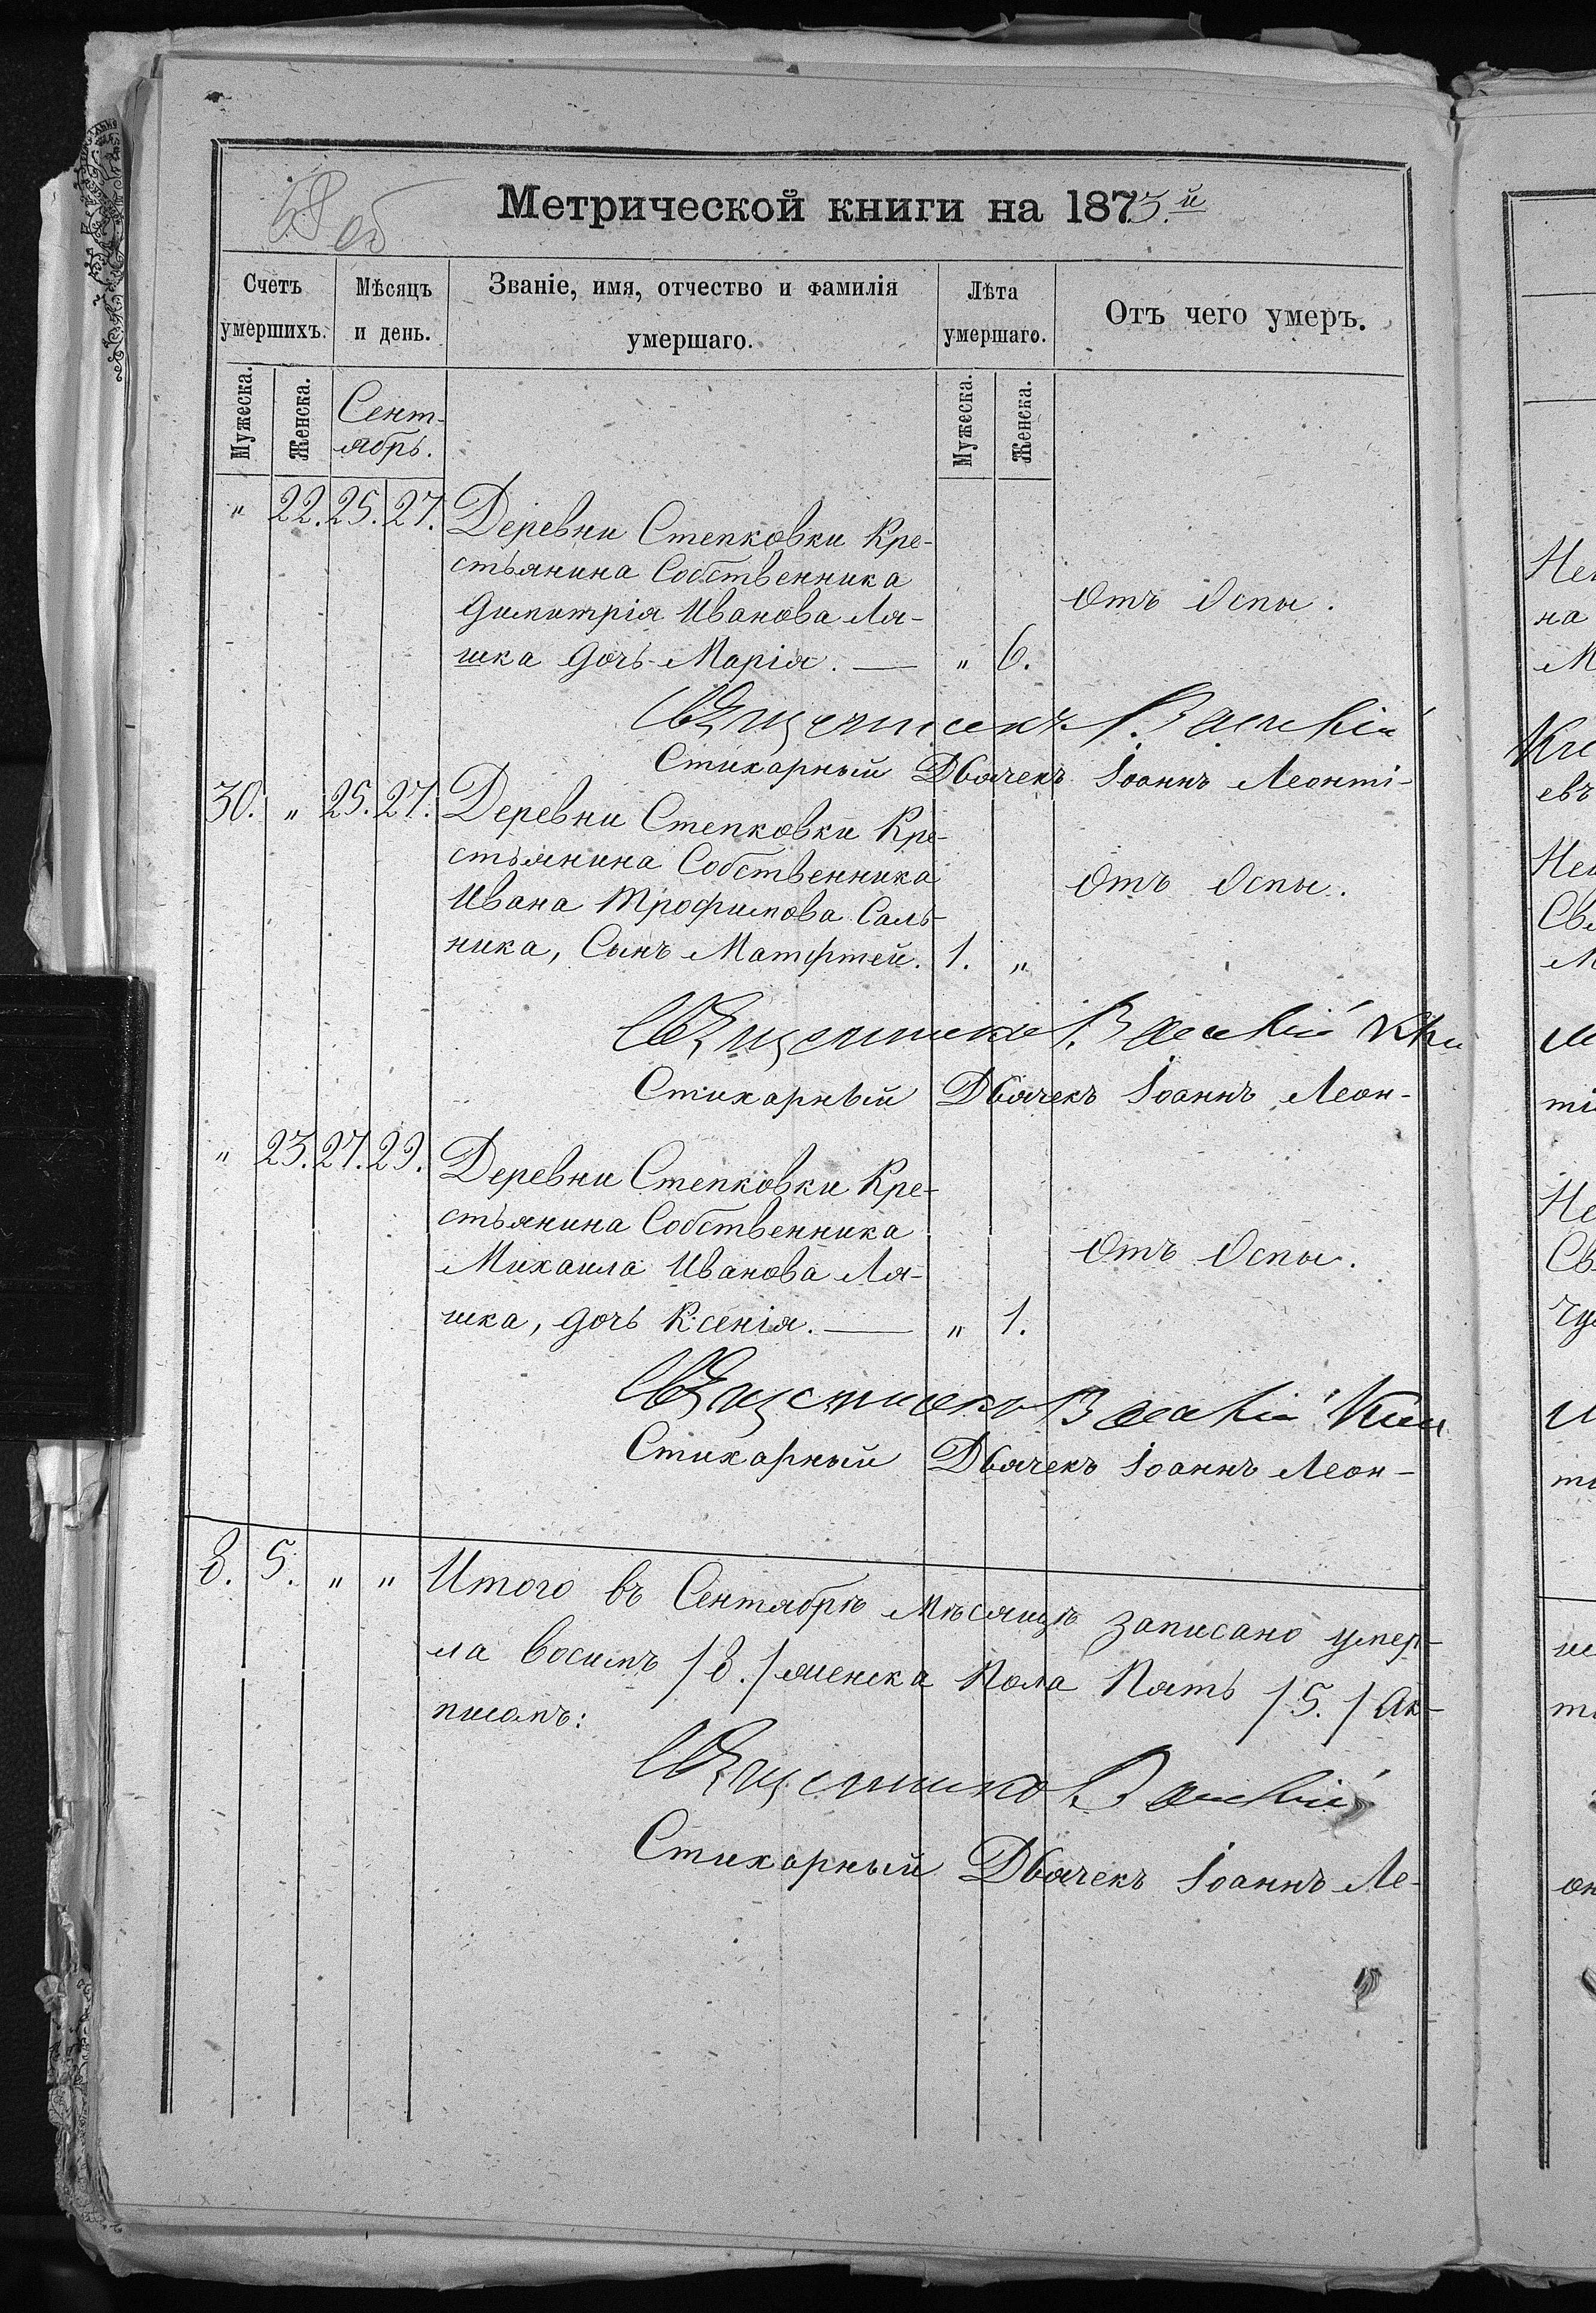 58 об
Метрической книги на 1873.й
Счетъ умершихъ.
Мѣсяцъ и день.
Званіе, имя, отчество и фамилія умершаго.
Лѣта умершаго.
Отъ чего умеръ.
Мужеска.
Женска.
Сент-
ябрь.
Мужеска.
Женска.
" 22. 25. 27. Деревни Степковки Кре-
стьянина Собственника
Димитрія Иванова Ля-
шка дочь Марія. — " 6.
Отъ Оспы.
Священникъ
Стихарный Дьячекъ Іоаннъ Леонті-
30. " 25. 27. Деревни Степковки Кре-
стьянина Собственника
Ивана Трофимова Саль-
ника, Сынъ Матфтей. 1. "
Отъ Оспы.
Священникъ
Стихарный Дьячекъ Іоаннъ Леон-
" 23. 27. 29. Деревни Степковки Кре-
стьянина Собственника
Михаила Иванова Ля-
шка, дочь Ксенія. — " 1.
Отъ Оспы.
Священникъ
Стихарный Дьячекъ Іоаннъ Леон-
8. 5. " " Итого въ Сентябрѣ Мѣсяцѣ записано умер-
ла Восимъ /8./ женска Пола Пять /5./ Ак-
писомъ:
Священникъ
Стихарный Дьячекъ Іоаннъ Ле-